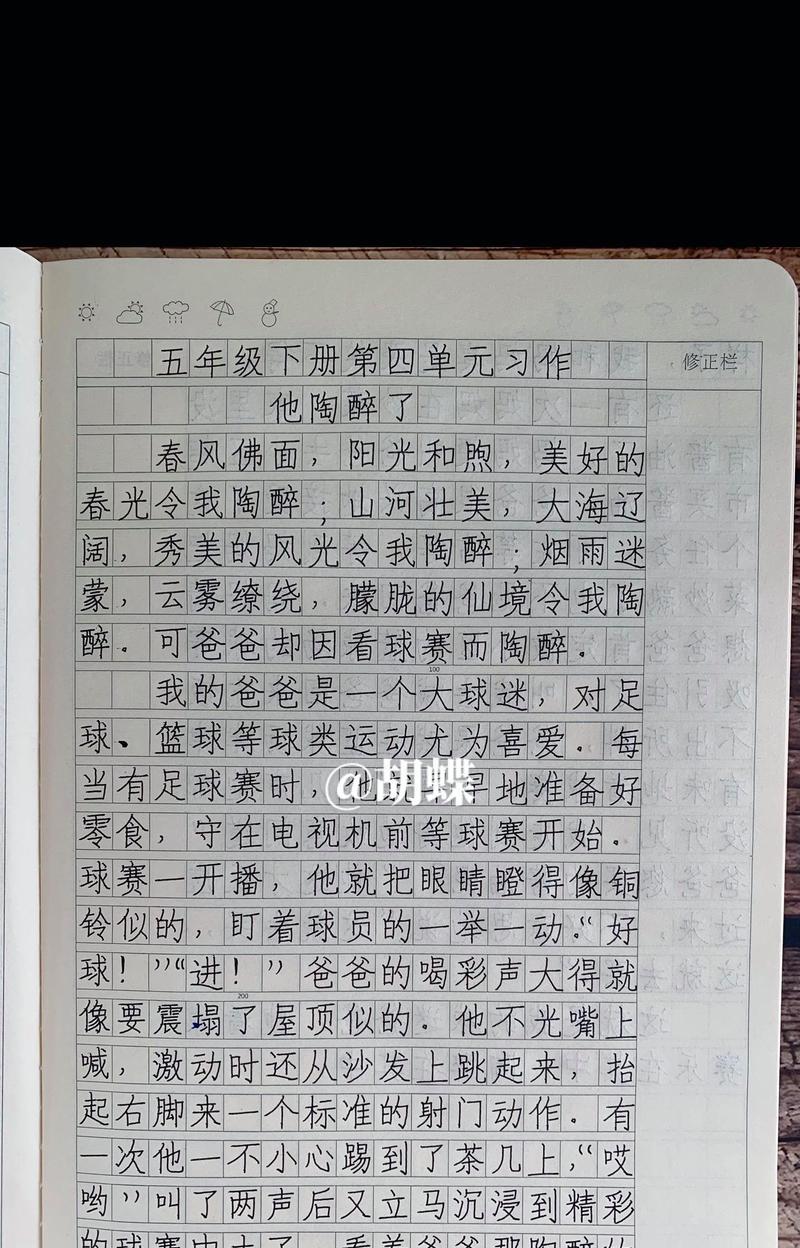 五年级下册第四单元习作
修正栏
他陶醉了
春风佛面，阳光和煦，美好的
春光令我陶醉；山河壮美，大海辽
阔，秀美的风光令我陶醉；烟雨迷
蒙，云雾缭绕，朦胧的仙境令我陶
醉。可爸爸却因看球赛而陶醉。
100
我的爸爸是一个大球迷，对足
球、篮球等球类运动尤为喜爱。每
当有足球赛时，他早地准备好
@胡蝶
零食，守在电视机前等球赛开始。
球赛一开播，他就把眼睛瞪得像铜
铃似的，盯着球员的一举一动。“好
球！”“进！”爸爸的喝彩声大得就
200
像要震塌了屋顶似的。他不光嘴上
喊，激动时还从沙发上跳起来，抬
起右脚来一个标准的射门动作。有
一次他一不小心踢到了茶几上，“哎
哟”叫了两声后又立马沉浸到精彩
的球赛中去了。看着爸爸那陶醉